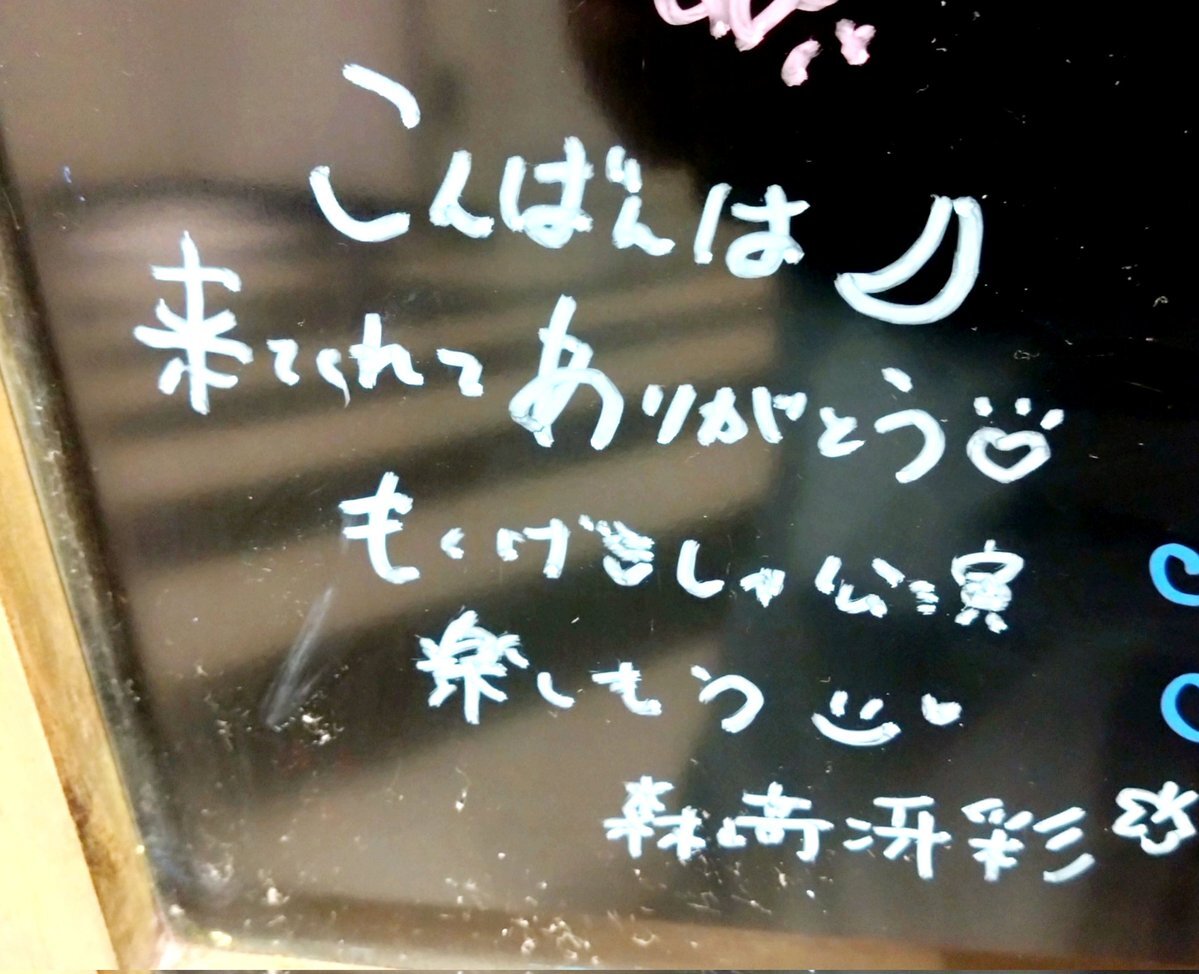 こんばんは
来てくれて ありがとう
もくげきしゃ公演
楽しもう
森崎冴彩